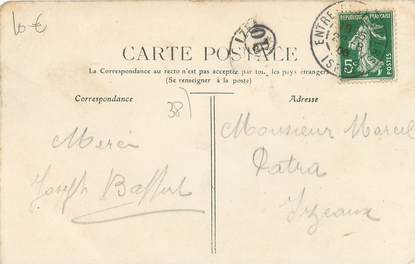 10 €
CARTE POSTALE
La Correspondance au recto n'est pas acceptée par tous les pays étrangers
(Se renseigner à la poste)
Correspondance
Adresse
38)
Merci
Joseph Baffert
Monsieur Marcel
Patra
Izeaux
ENTRE
REPUBLIQUE FRANCAISE
5c
POSTES